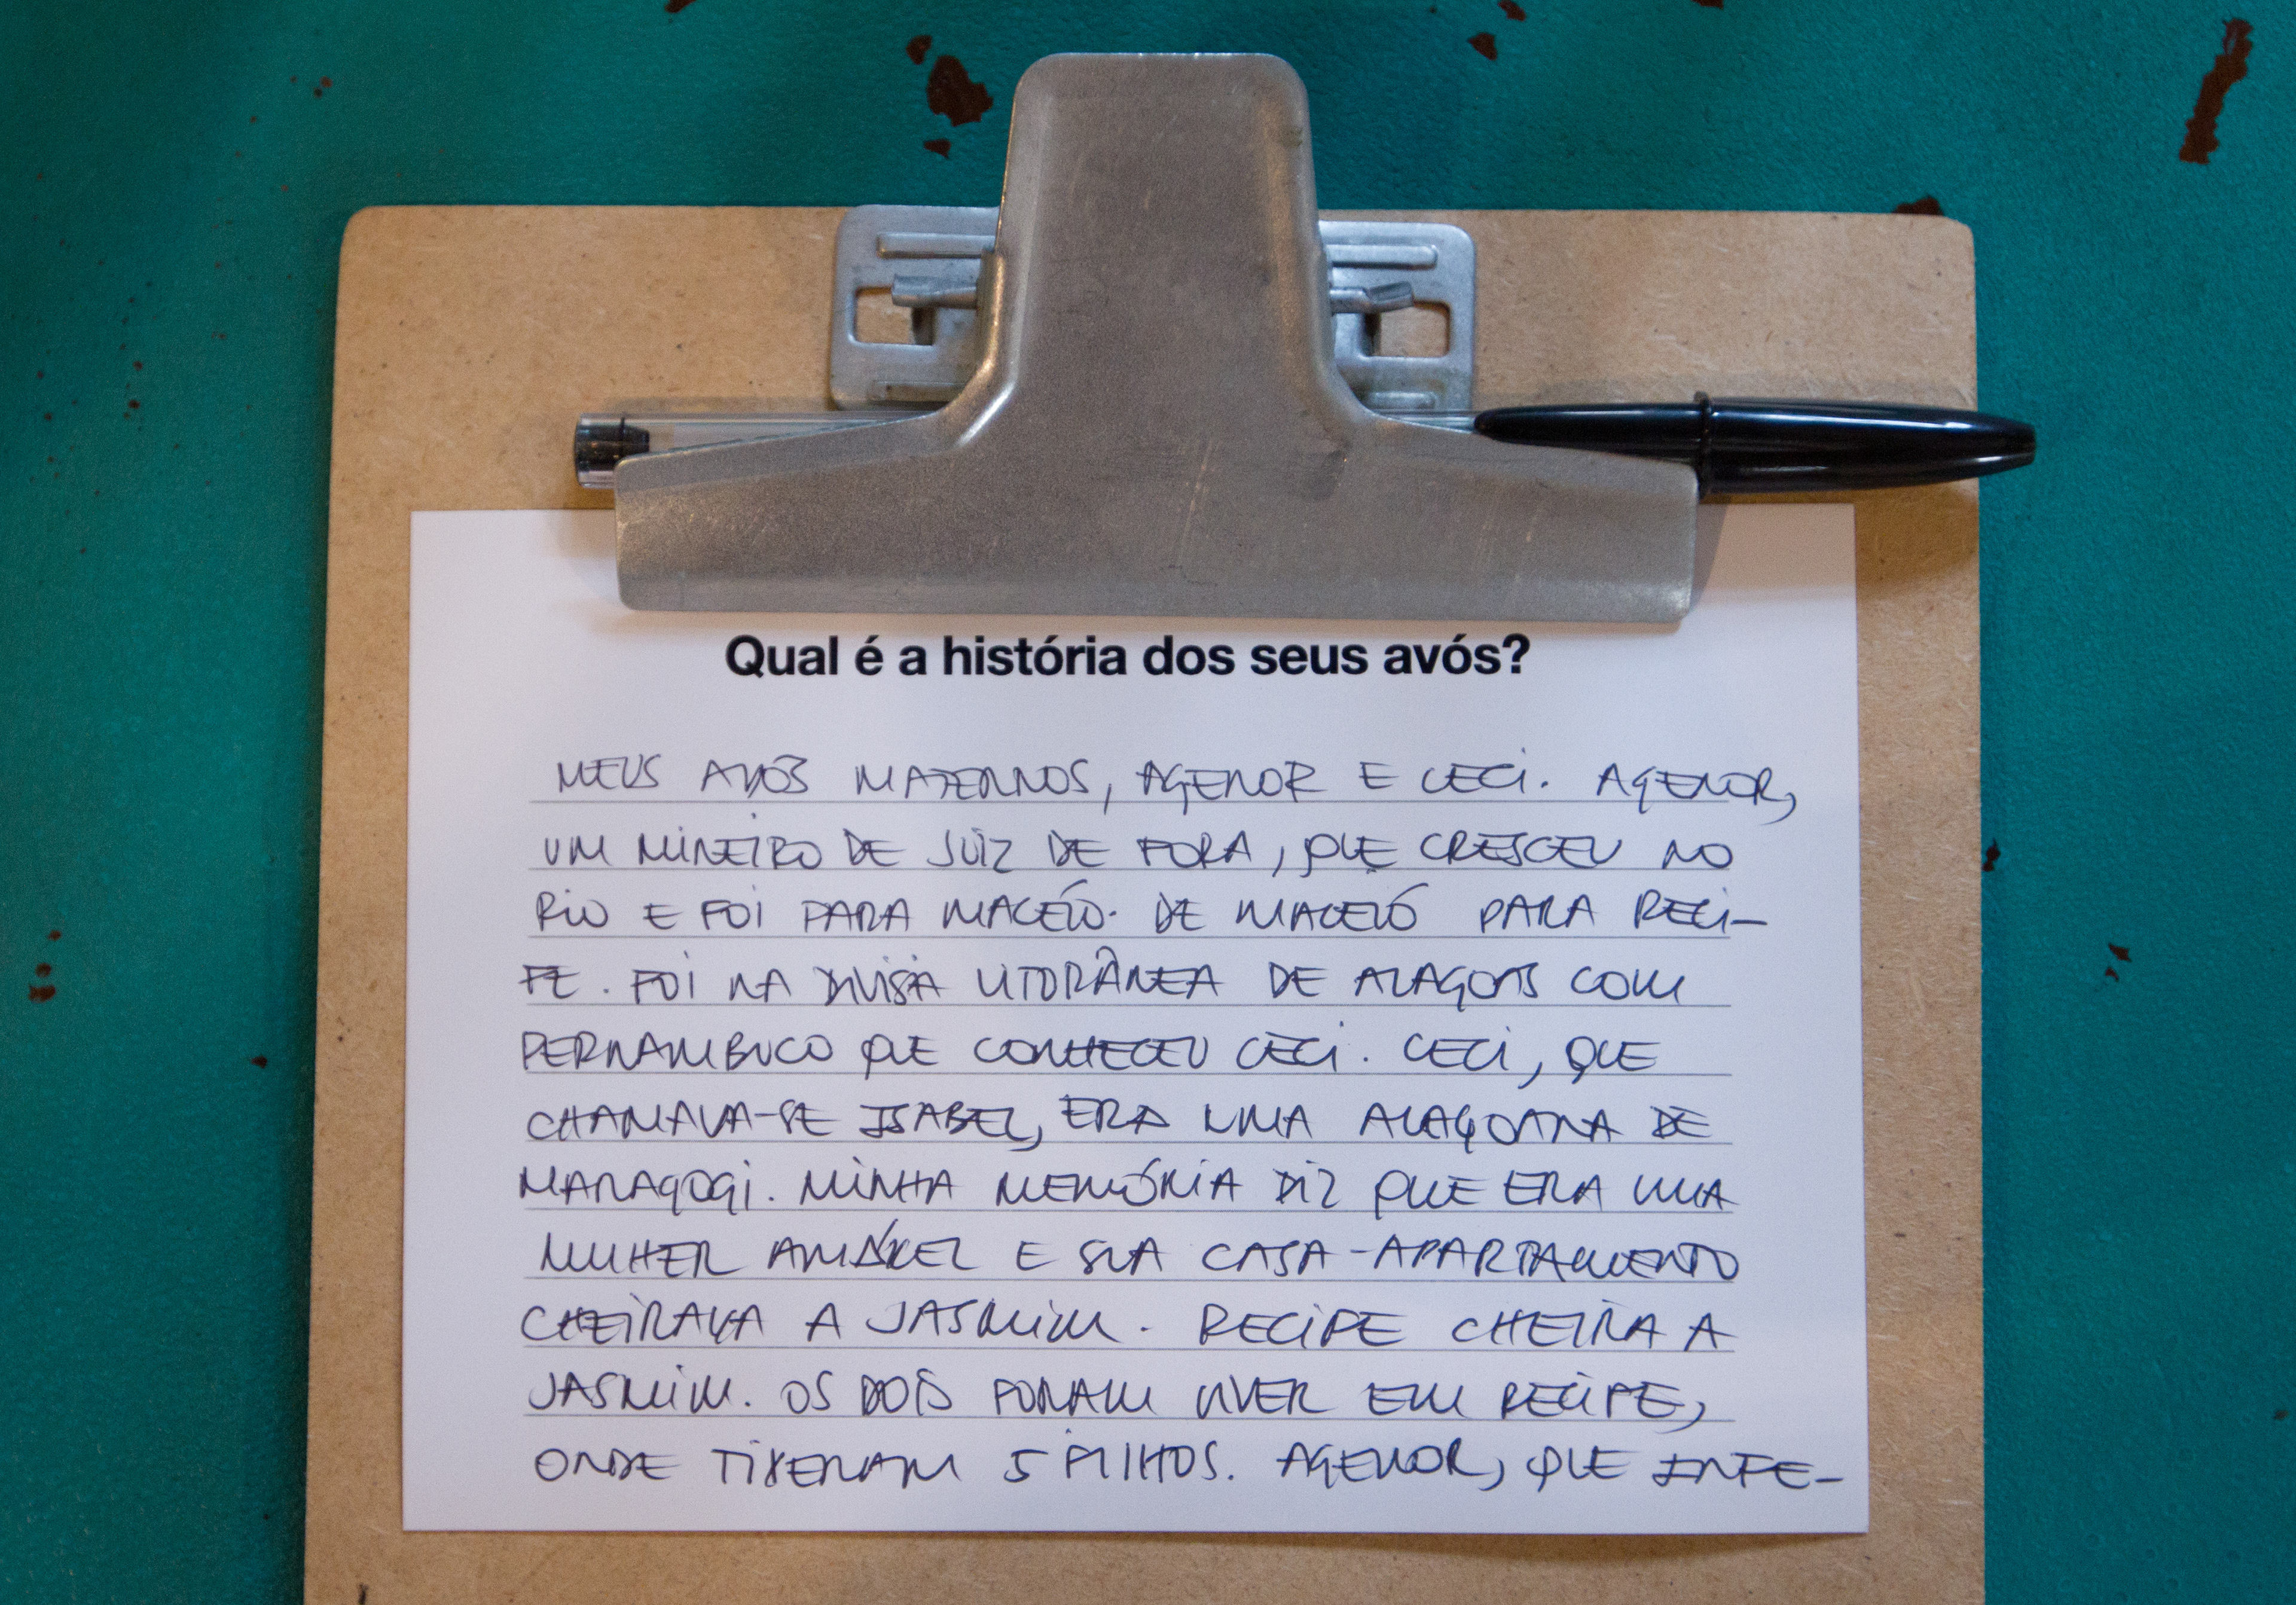 Qual é a história dos seus avós?
MEUS AVÓS MATERNOS, AGENOR E CECI. AGENOR,
UM MINEIRO DE JUIZ DE FORA, QUE CRESCEU NO
RIO E FOI PARA MACEIÓ. DE MACEIÓ PARA RECI-
FE. FOI NA DIVISA LITORÂNEA DE ALAGOAS COM
PERNAMBUCO QUE CONHECEU CECI. CECI, QUE
CHAMAVA-SE ISABEL, ERA UMA ALAGOANA DE
MARAGOGI. MINHA MEMÓRIA DIZ QUE ERA UMA
MULHER AMÁVEL E SUA CASA-APARTAMENTO
CHEIRAVA A JASMIM. RECIFE CHEIRA A
JASMIM. OS DOIS FORAM VIVER EM RECIFE,
ONDE TIVERAM 5 FILHOS. AGENOR, QUE INFE-